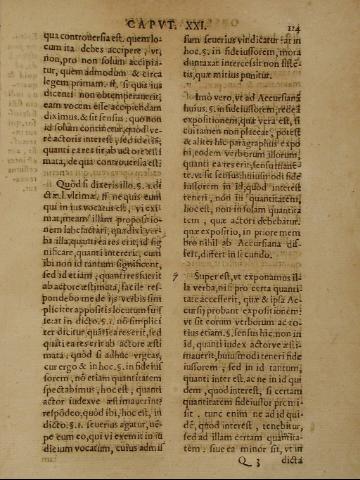 CAPVT. XXI. 124
qua controuersia est, quem locum
ita debes accipere, vt,
non, pro non solum accipiatur,
quem admodum & circa
legem primam. ff. si quis ius
dicenti non obtemperauerit,
eam vocem esse accipiendam
diximus. & sit sensus: quo non
id solum continetur, quòd
re actoris interest, sed id etiã,
quanti ea res erit ab actore æstimata,
de qua controuersia est:
Quòd si dixeris illo. §. 2. dictæ.
l. vltimæ, si ne quis eum
qui in ius vocauit est, vi eximat,
meam illam propositionem
labefactari, quia dixi verba
illa, quanti ea res erit, id significare,
quanti intererit, cum
ibi non id tantum significent,
sed id etiam, quanti res fuerit
ab actore æstimata, facile respondebo
me de ijs verbis simpliciter
appositis locutum fuisse:
at in dicto. §. 1. nõ simpliciter
dicitur quanti ea res erit, sed
quanti ea res erit ab actore æstimata:
quòd si adhuc vrgeas,
cur ergo & in hoc. §. in fideiussorem,
nõ etiam quantitatem
spectabimus, hoc est, quanti
actor iudexve æstimauerint:
respõdeo, quòd ibi, hoc est, in
dicto. §. 1. seuerius agatur, nẽpe
eum eo, qui vi exemit in iudicium
vocatum, cuius
sum seuerius vindicatur: at in
hoc. §. in fideiussorem,
duntaxat intercessit non
tis, qua mitius punitur.
Imò vero, vt ad Accursianã
huius. §. in fideiussorem, redeã
expositionem, quæ vera est, si
cui tamen non placeat, potest
& aliter hic paragraphus exponi
eodem verborum illorum,
quanti ea res erit, sensu
te. vt sit sensus: huiusmodi fideiussorem
in id, quòd interest
teneri, non in quantitatem,
hoc est, non in solam quantitatem,
quæ actori debeatur.
quæ expositio, in priore membro
nihil ab Accursiana differt,
differt in secundo.
Superest, vt exponamus illa
verba, nisi pro certa quantitate
accesserit, quæ & ipsa Accursij
probant expositionem:
vt sit eorum verborum ac totius
etiam. §. sensus hic, non in
id, quanti iudex actorve æstimauerit,
huiusmodi teneri fideiussorem,
sed in id tantum,
quanti interest, ac ne in id quidem,
quod interest, si certam
quantitatem fideiussor promisit.
tunc enim ne ad id quidẽ,
quòd interest, tenebitur,
sed ad illam certam quantitatem,
siue ea minor sit, vt in
Q 3 dicta